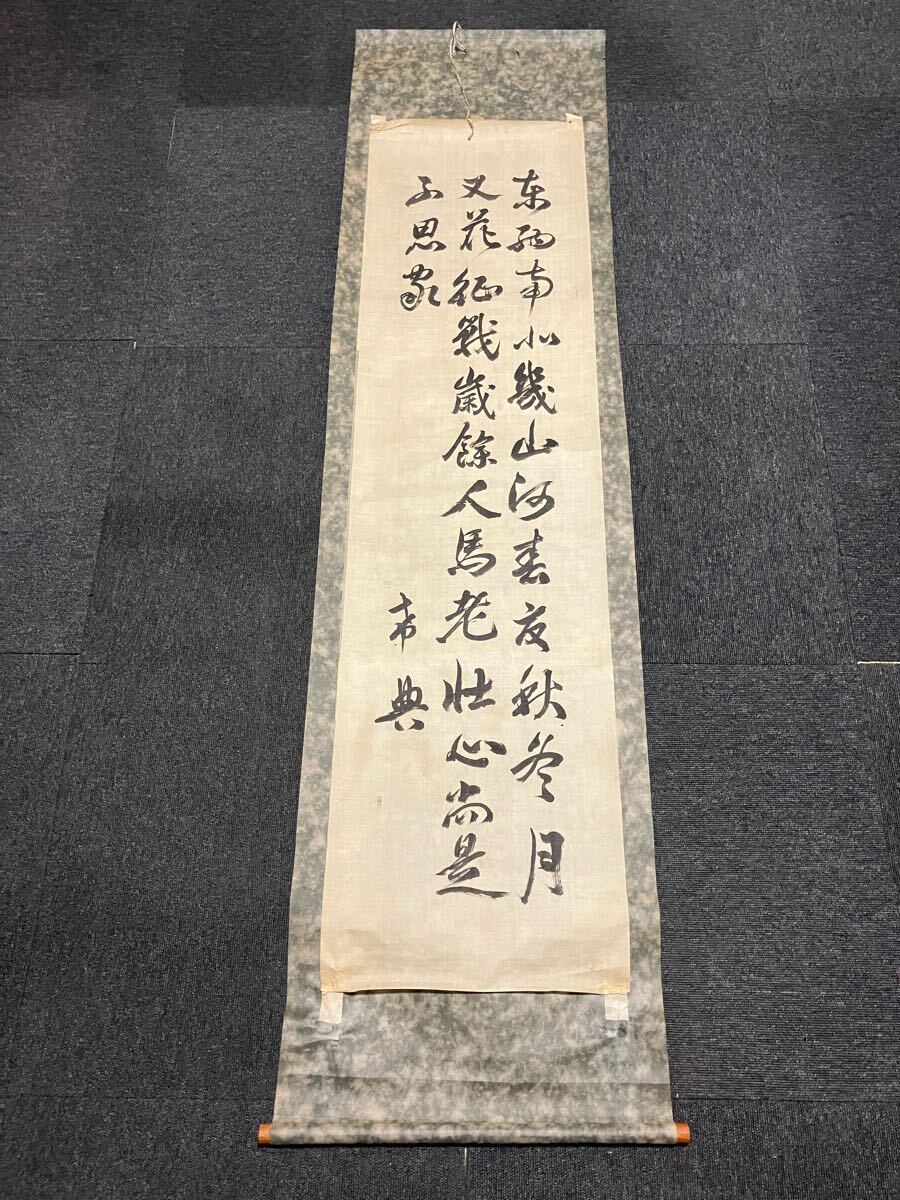 東西南北幾山河春夏秋冬月
又花征戰歲餘人馬老壯心尚是
不思家
希典